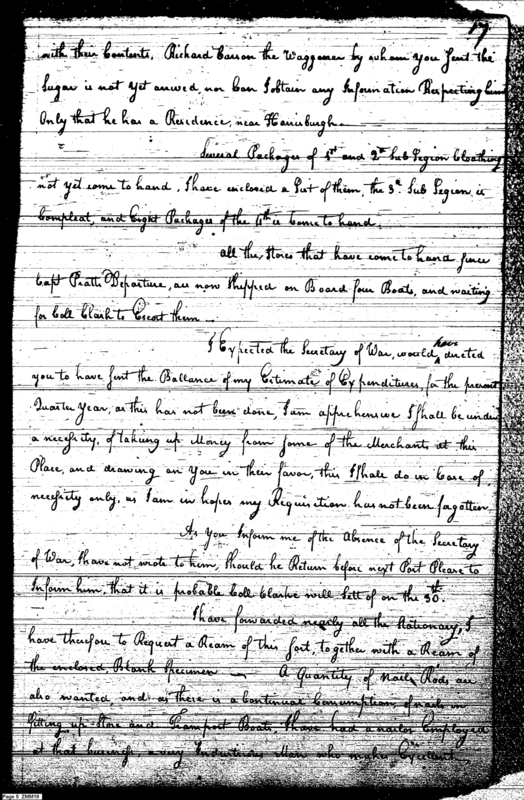 17
with their Contents. Richard Carson the Waggoner by whom you Sent the
Sugar is not yet arrived, nor Can I obtain any Information Respecting him
Only that he has a Residence, near Harrisburgh.
Several Packages of 1st and 2d Sub Legion Cloathing
not yet come to hand. I have enclosed a List of them, the 3d Sub Legion is
Compleat, and Eight Packages of the 4th is Come to hand.
all the, Stores that have come to hand since
Capt Pratts Departure, are now Shipped on Board four Boats, and waiting
for Coll Clark to Escort them
I Expected the Secretary of War, would have directed
you to have sent the Ballance of my Estimate of Expenditures, for the present
Quarter Year, as this has not been done, I am apprehensive I shall be under
a necessity, of taking up Money from some of the Merchants at this
Place, and drawing on You in their favor, this I shall do in Case of
necessity only, as I am in hopes my Requisition has not been forgotten
As you Inform me of the Absence of the Secretary
of War, I have not wrote to him, Should he Return before next Post Please to
Inform him, that it is probable Coll Clarke will Sett of on the 30th.
I have forwarded nearly all the Stationary, I
have therefore to Request a Ream of this sort, together with a Ream of
the enclosed, Blank Specimen — A Quantity of Nail Rods are
also wanted, and as there is a Continual Consumption of nails in
fitting up Store and Transport Boats, I have had a nailor Employed
at that business a very Industrious Man who makes Excellent
Page 5 ZMM19